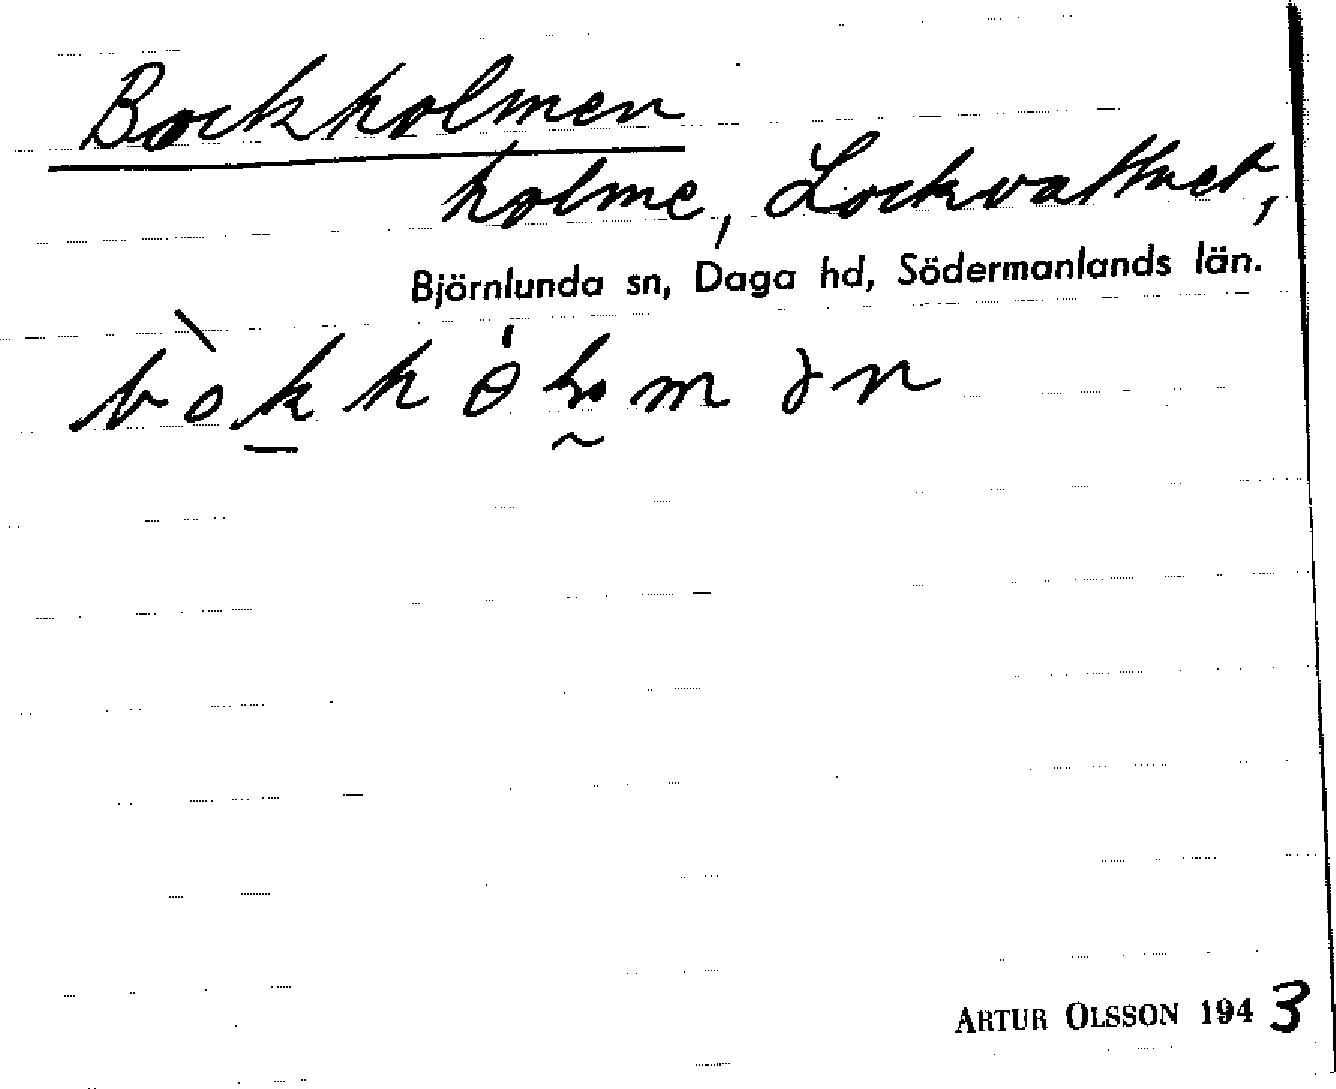 Bockholmen
holme, Lockvattnet,
Björnlunda sn, Daga hd, Södermanlands län.
ARTUR OLSSON 1943